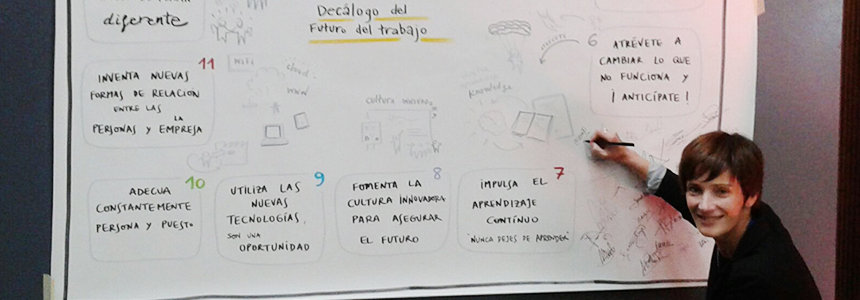 diferente
Decálogo del
Futuro del trabajo
11
INVENTA NUEVAS
FORMAS DE RELACIÓN
ENTRE LAS
PERSONAS Y LA EMPRESA
WIFI
cloud
www
cultura
Knowledge
6
ATRÉVETE A
CAMBIAR LO QUE
NO FUNCIONA Y
¡ANTICÍPATE!
10
ADECUA
CONSTANTEMENTE
PERSONA Y PUESTO
9
UTILIZA LAS
NUEVAS
TECNOLOGÍAS,
SON UNA
OPORTUNIDAD
8
FOMENTA LA
CULTURA INNOVADORA
PARA ASEGURAR
EL FUTURO
7
IMPULSA EL
APRENDIZAJE
CONTÍNUO
"NUNCA DEJES DE APRENDER"